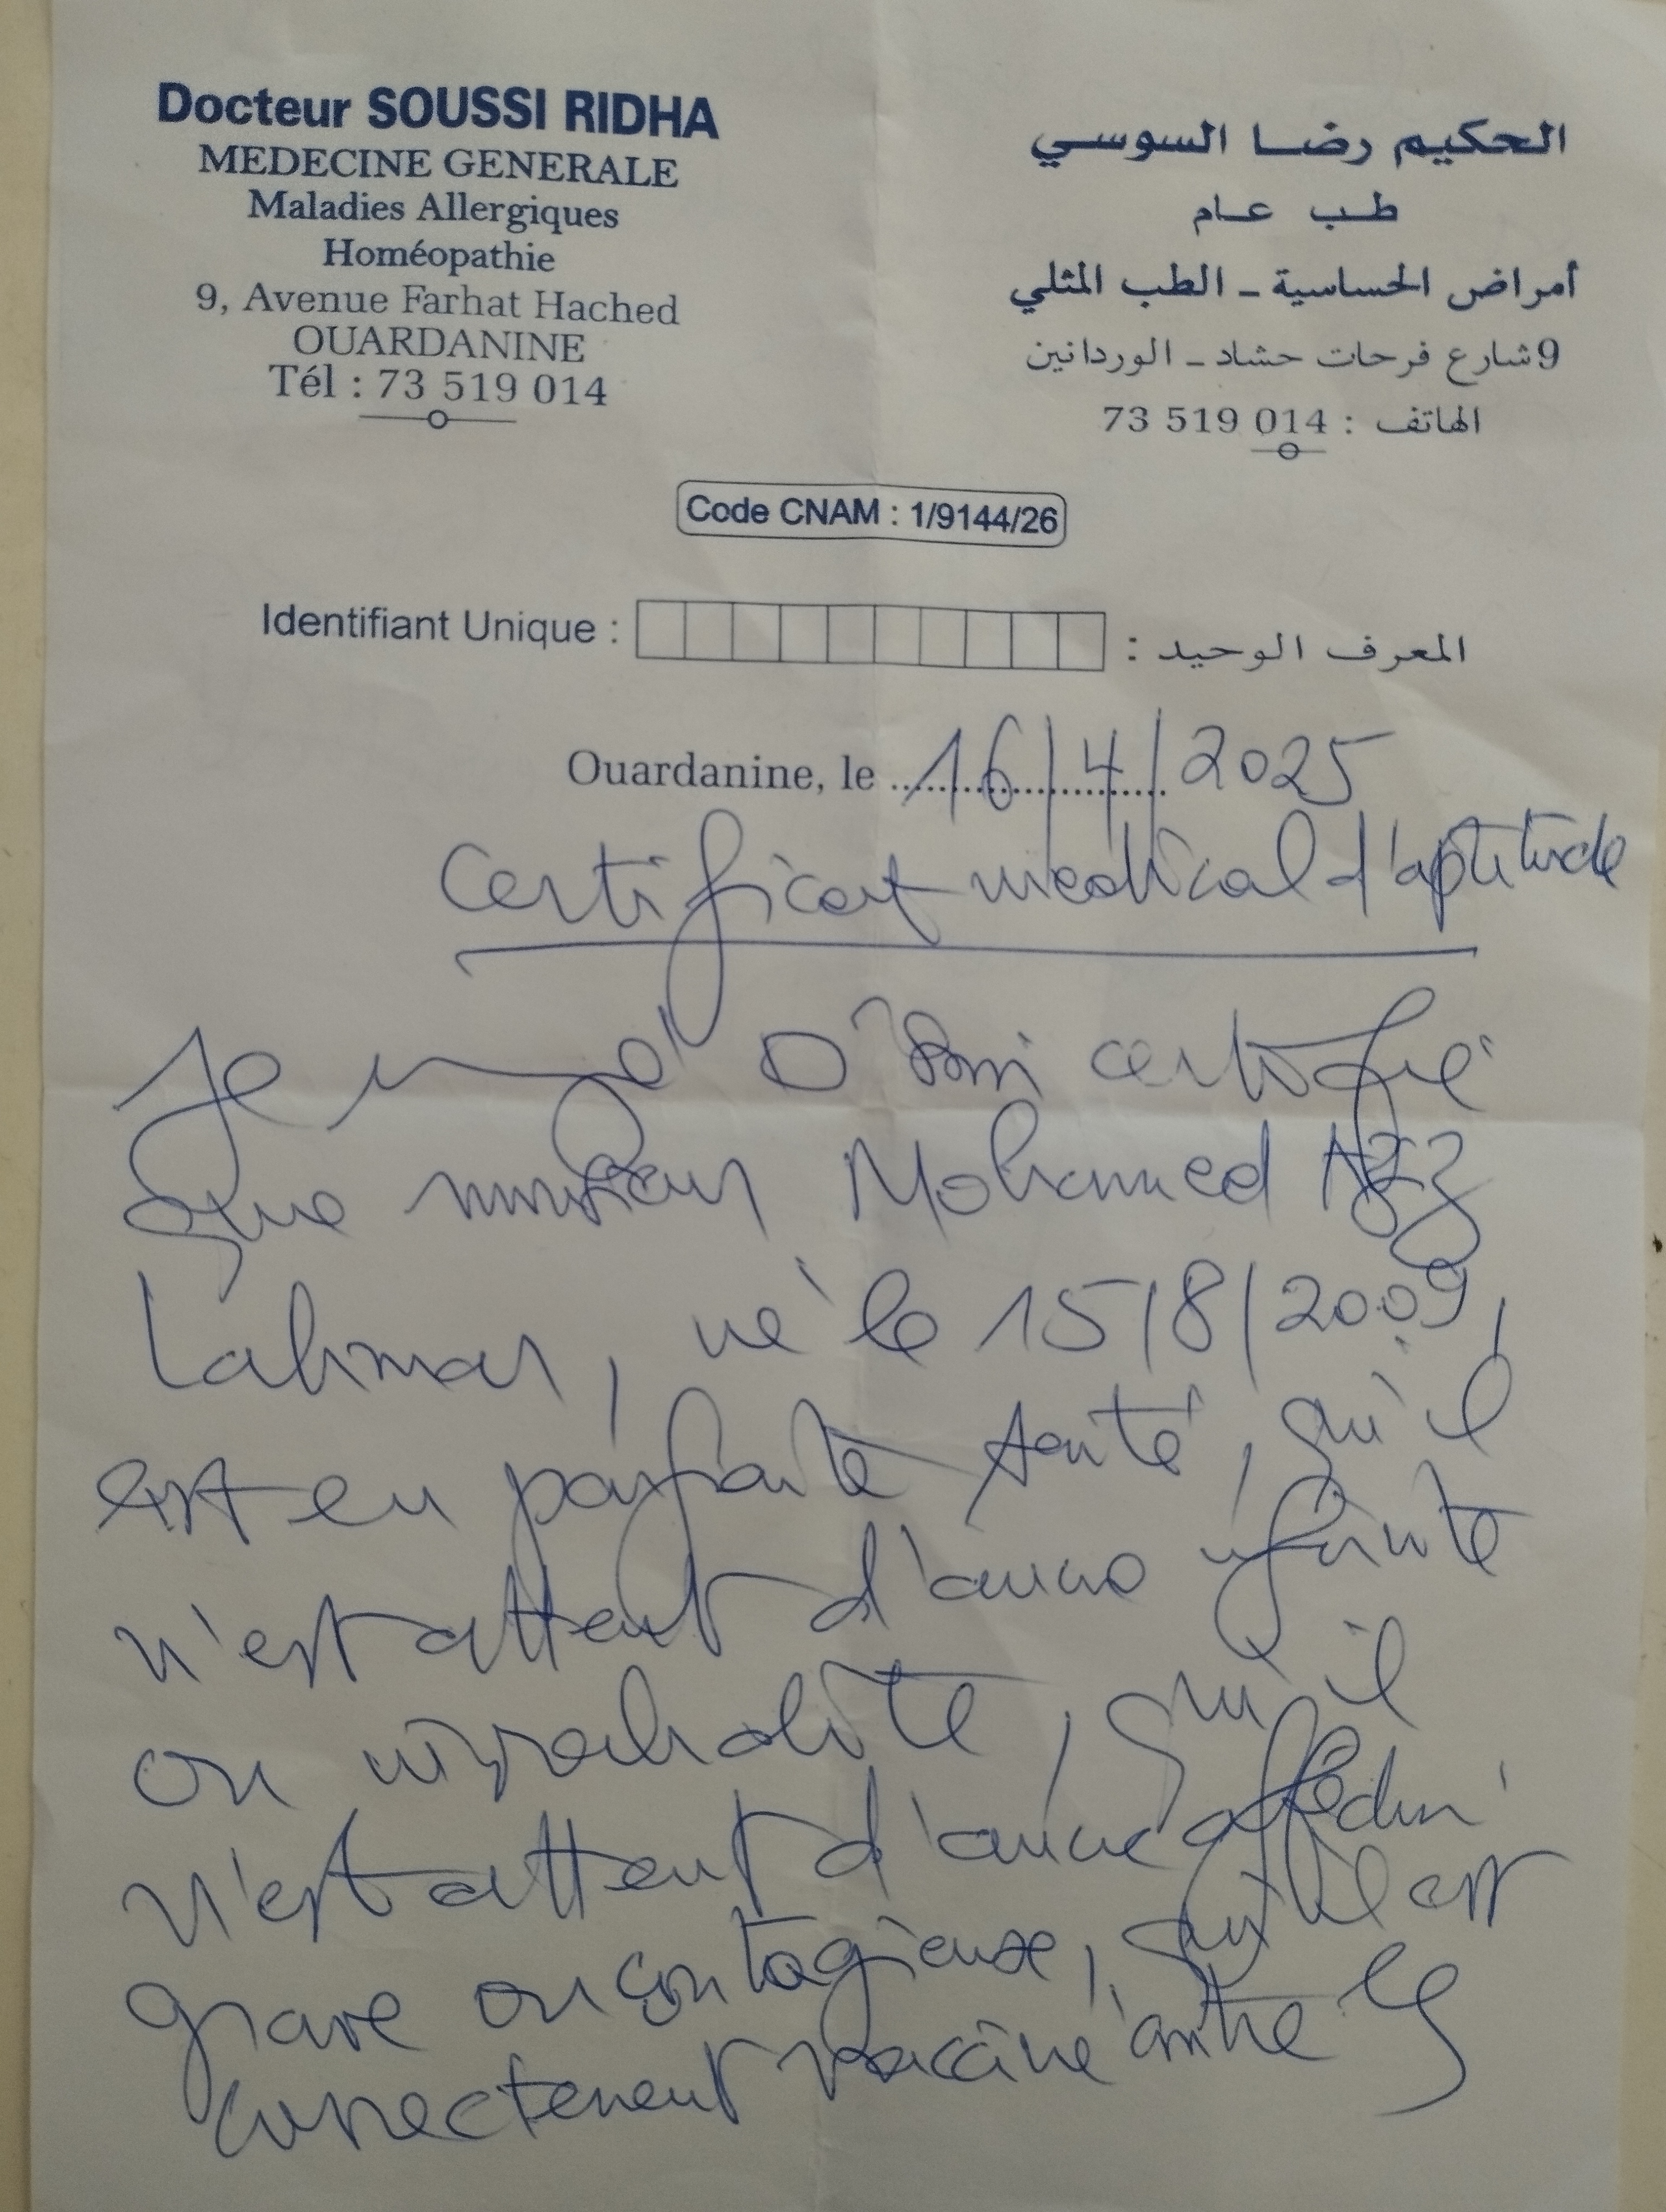 Docteur SOUSSI RIDHA
MEDECINE GENERALE
Maladies Allergiques
Homéopathie
9, Avenue Farhat Hached
OUARDANINE
Tél : 73 519 014
الحكيم رضا السوسي
طب عام
أمراض الحساسية - الطب المثلي
9 شارع فرحات حشاد - الوردانين
الهاتف : 73 519 014
Code CNAM : 1/9144/26
Identifiant Unique : المعرف الوحيد :
Ouardanine, le 16/4/2025
Certificat medical d'aptitude
Je certifie
que monsieur Mohamed
Lahmar, né le 15/8/2009,
est en parfaite santé, qu'il
n'est atteint d'aucune
ou, qu'il
n'est atteint d'aucune
grave ou contagieuse, qu'il est
correctement vacciné contre